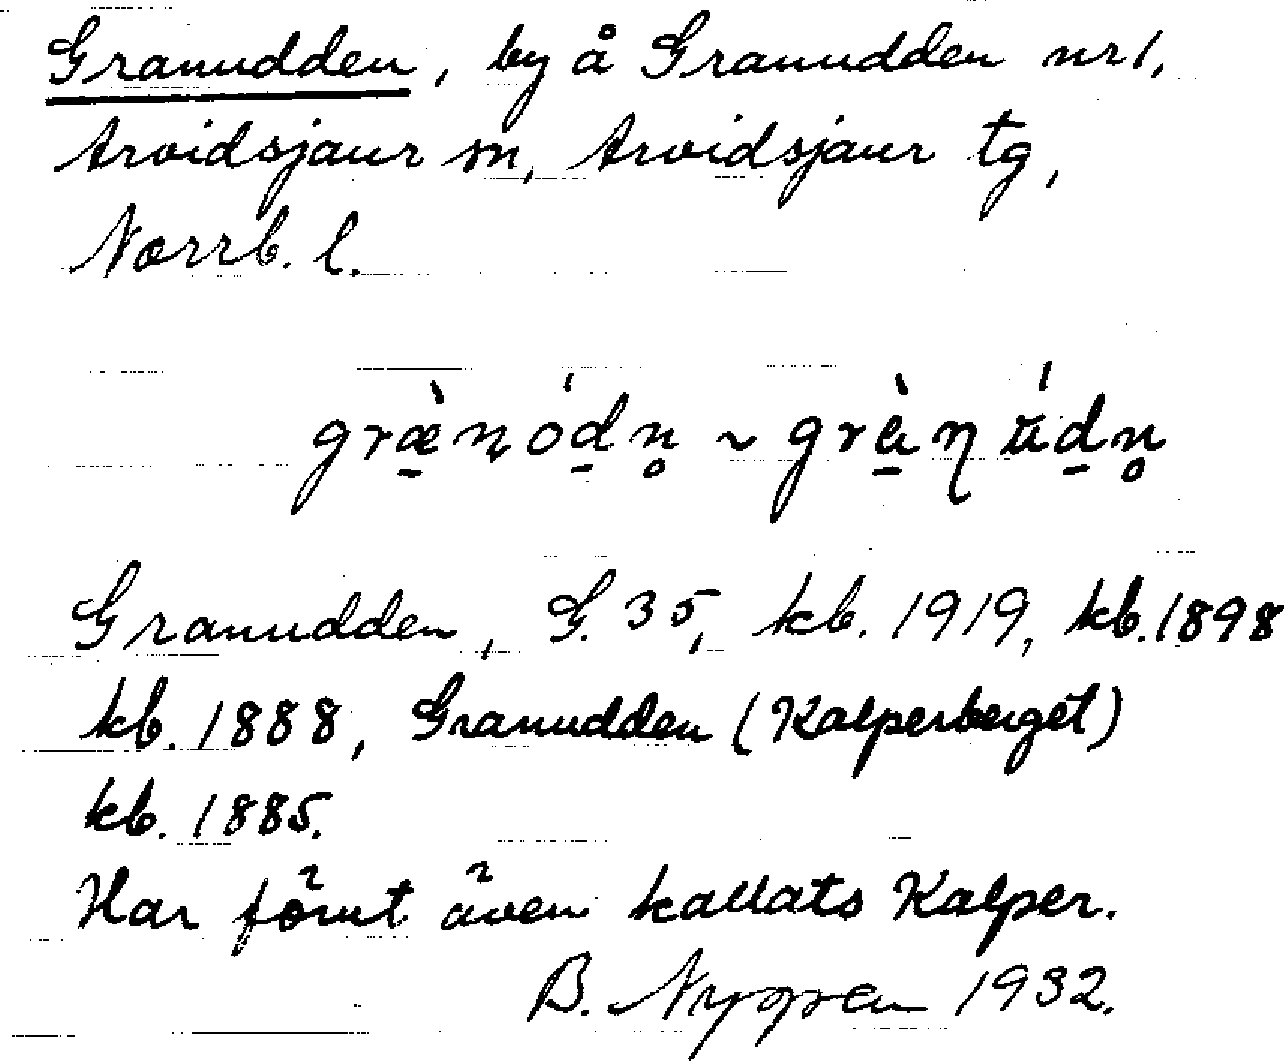 Granudden, by å Granudden nr 1,
Arvidsjaur sn, Arvidsjaur tg,
Norrb. l.
græ̱̀nód̠n̥ ~ grà̱núd̠n̥
Granudden, G. 35, kb. 1919, kb. 1898
kb. 1888, Granudden (Kalperberget)
kb. 1885.
Har förut även kallats Kalper.
B. 1932.